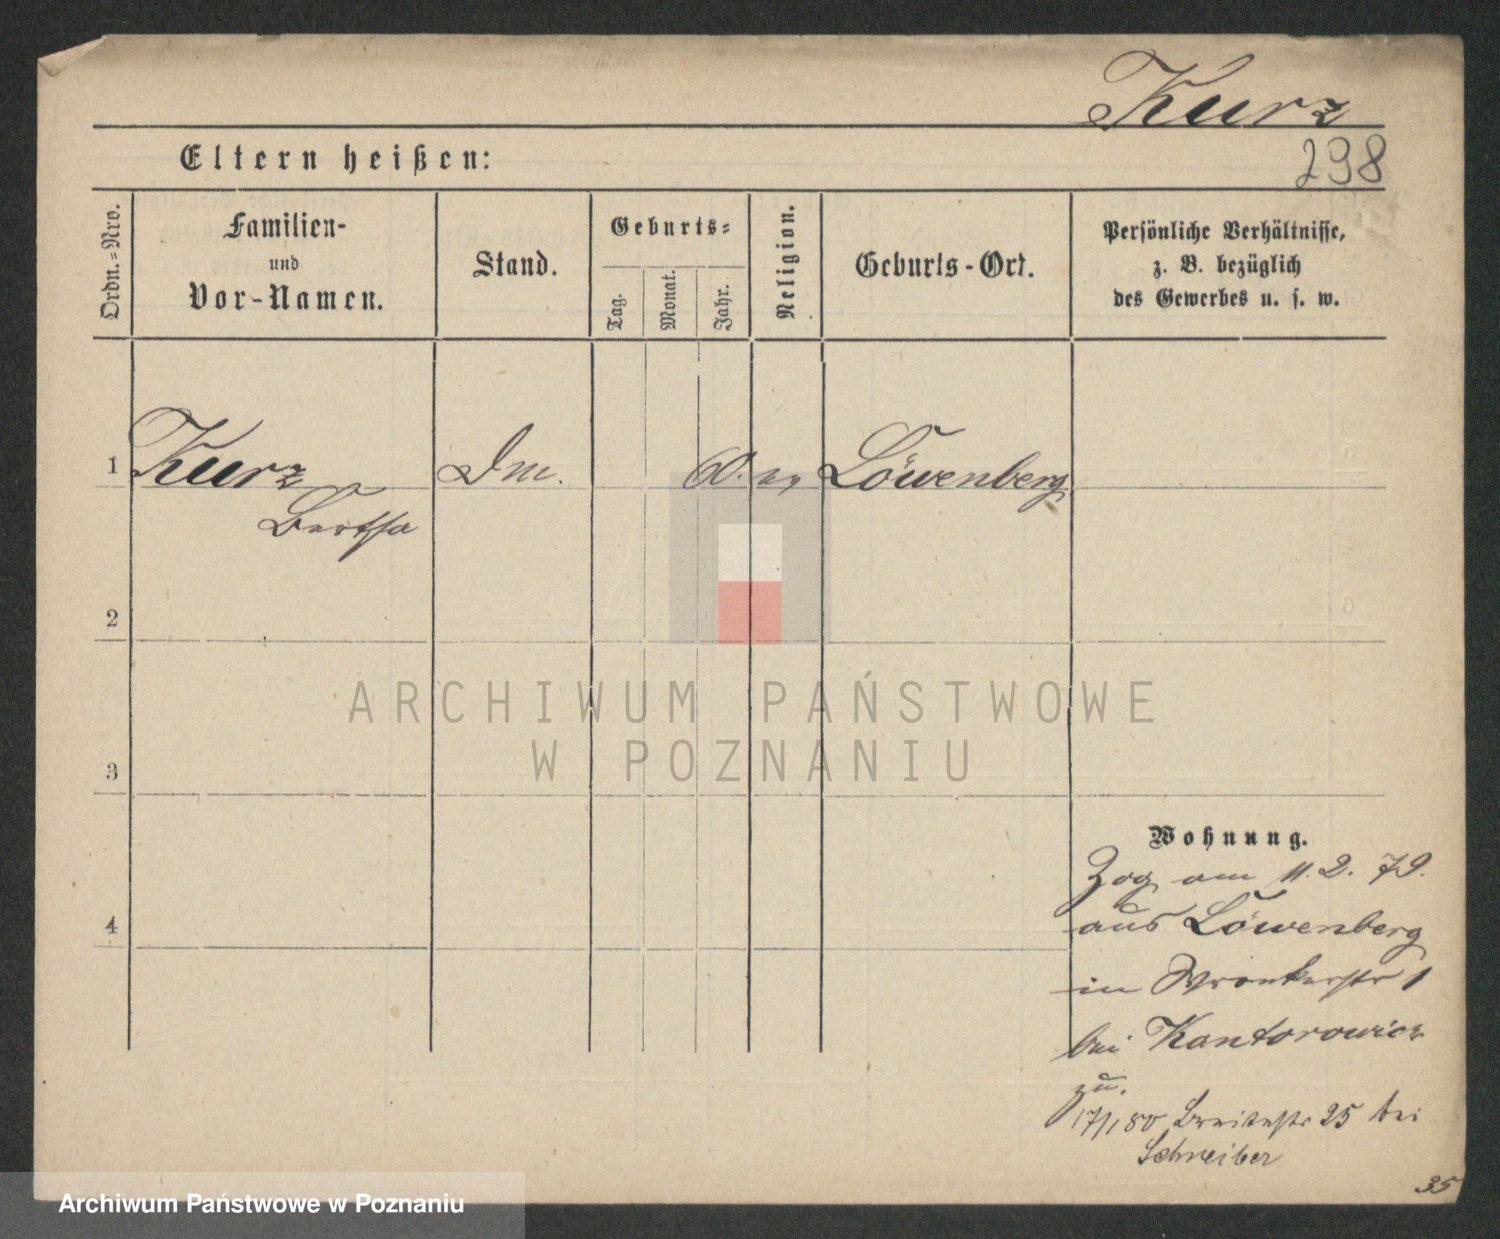 Kurz
Eltern heißen:
298
Ordn.=Nro.
Familien-
und
Vor-Namen.
Stand.
Geburts=
Tag.
Monat.
Jahr.
Religion.
Geburts-Ort.
Persönliche Verhältnisse,
z. B. bezüglich
des Gewerbes u. s. w.
1 Kurz 60. ev Löwenberg
Bertha
2
ARCHIWUM PAŃSTWOWE
W POZNANIU
3
Wohnung.
Zog am 11. 2. 79.
4
aus Löwenberg
in Wronkerstr 1
bei Kantorowicz
zu.
17/1 80 Breitestr 25 bei
Schreiber
35
Archiwum Państwowe w Poznaniu